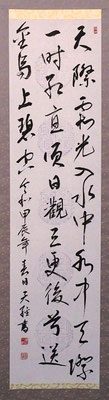 天際霞光入水中水中天際
一時紅直須日觀三更後首送
金烏上碧空 令和甲辰年春日 天 書